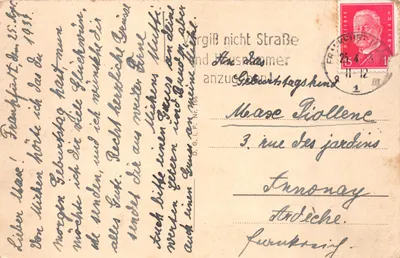 Frankfurt, den 25. Apr. 1931.
Lieber Max!
Von hörte ich das Du
morgen Geburtstag hast nun
möchte ich dir viele Glückwün-
sche senden, und ich wünsche dir
alles Gute. Recht herzliche Grüsse
sendet dir aus weiter Ferne
Mutti
Auch bitte einen Gruss an deine
werten Eltern und Bruder, aber
auch einen Gruss an meine
giß nicht Straße
und
anzug
An das
Geburtstagskind
Max Piollenc
3. rue des jardins
Annonay
Ardèche.
Frankreich.